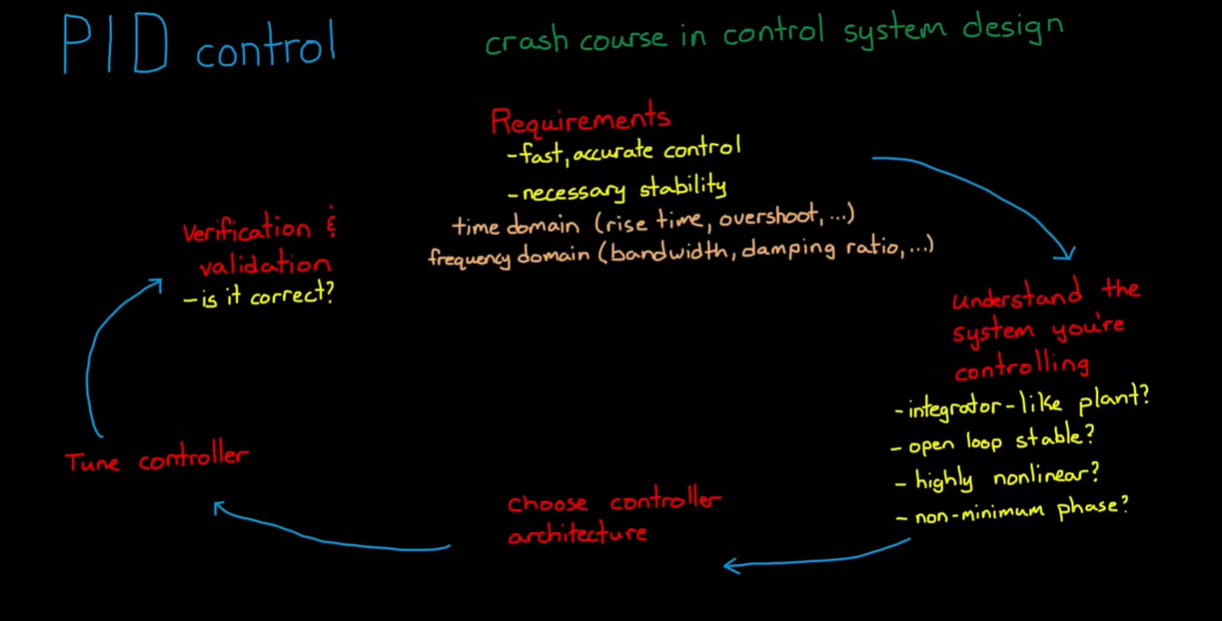 PID control
crash course in control system design
Requirements
-fast, accurate control
-necessary stability
time domain (rise time, overshoot, ...)
frequency domain (bandwidth, damping ratio, ...)
understand the
system you're
controlling
-integrator-like plant?
- open loop stable?
- highly nonlinear?
- non-minimum phase?
choose controller
architecture
Tune controller
verification &
validation
-is it correct?